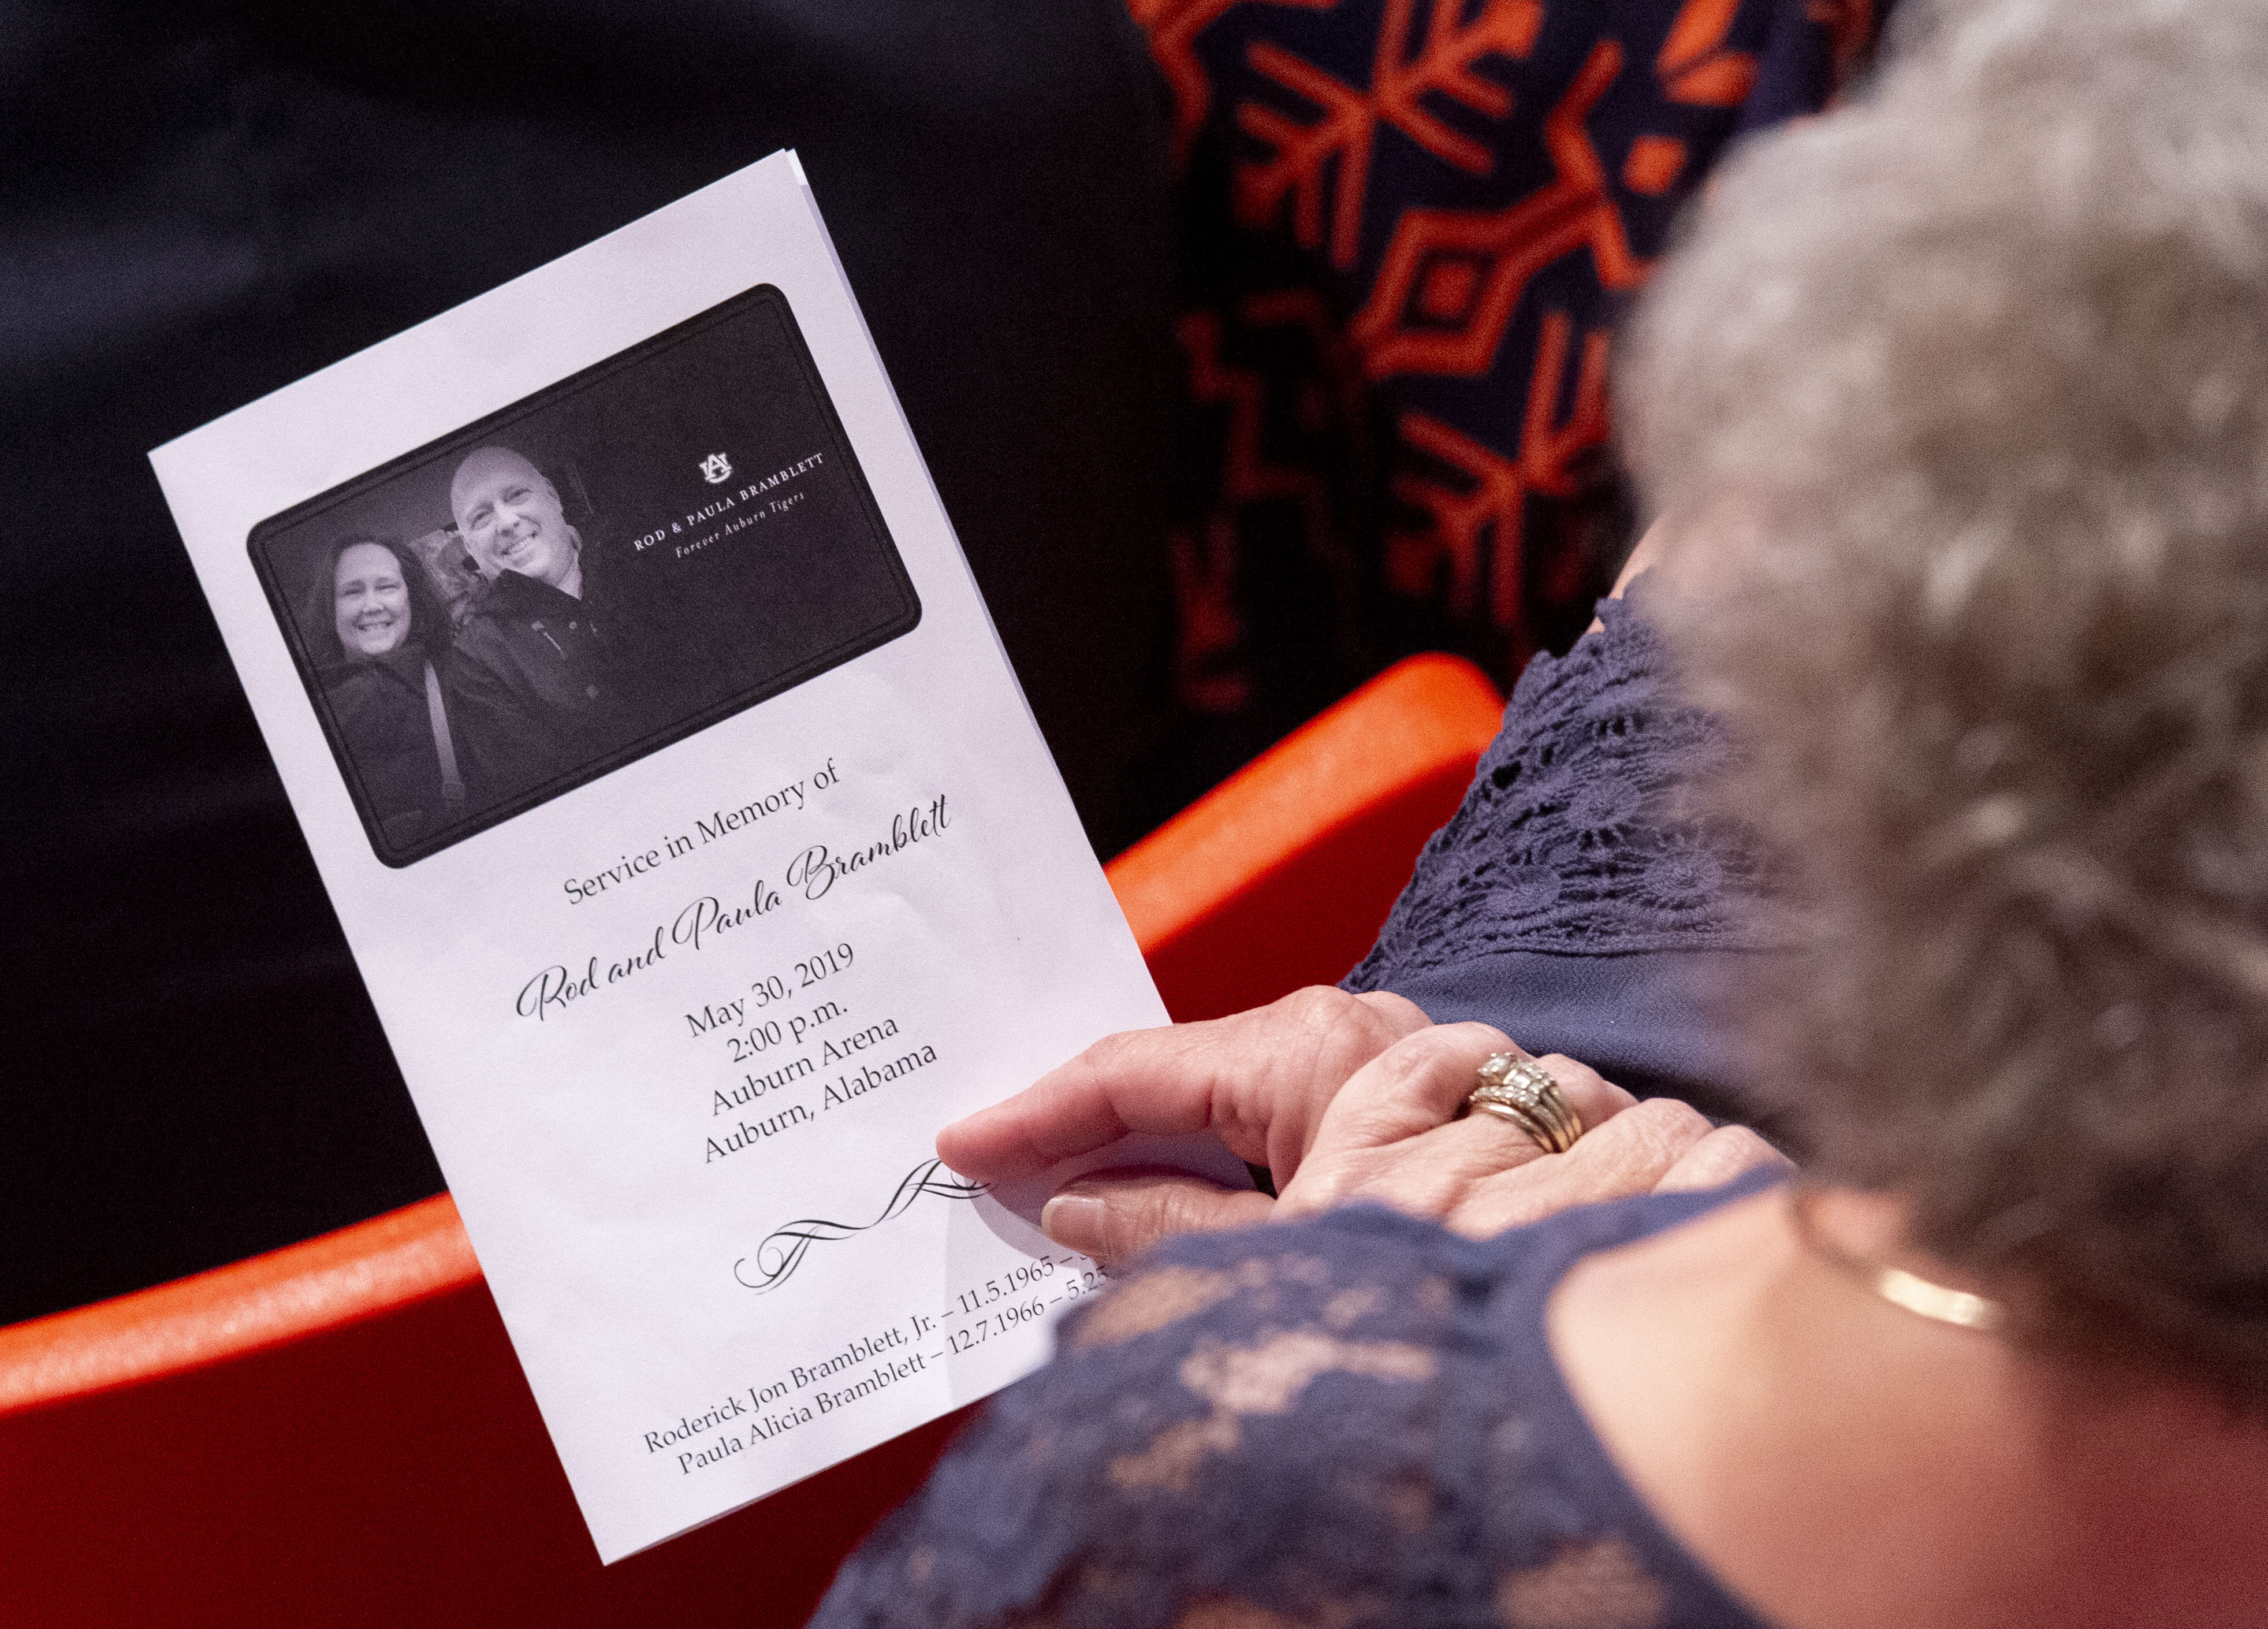 AU
ROD & PAULA BRAMBLETT
Forever Auburn Tigers
Service in Memory of
Rod and Paula Bramblett
May 30, 2019
2:00 p.m.
Auburn Arena
Auburn, Alabama
Roderick Jon Bramblett, Jr. – 11.5.1965 –
Paula Alicia Bramblett – 12.7.1966 – 5.25